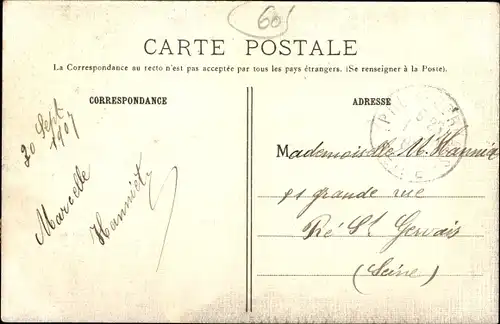 60
CARTE POSTALE
La Correspondance au recto n'est pas acceptée par tous les pays étrangers. (Se renseigner à la Poste).
CORRESPONDANCE
ADRESSE
20 Sept
1907
Marcelle
Hanniet
Mademoiselle M. Hanniet
91 grande rue
Pré St Gervais
(Seine)